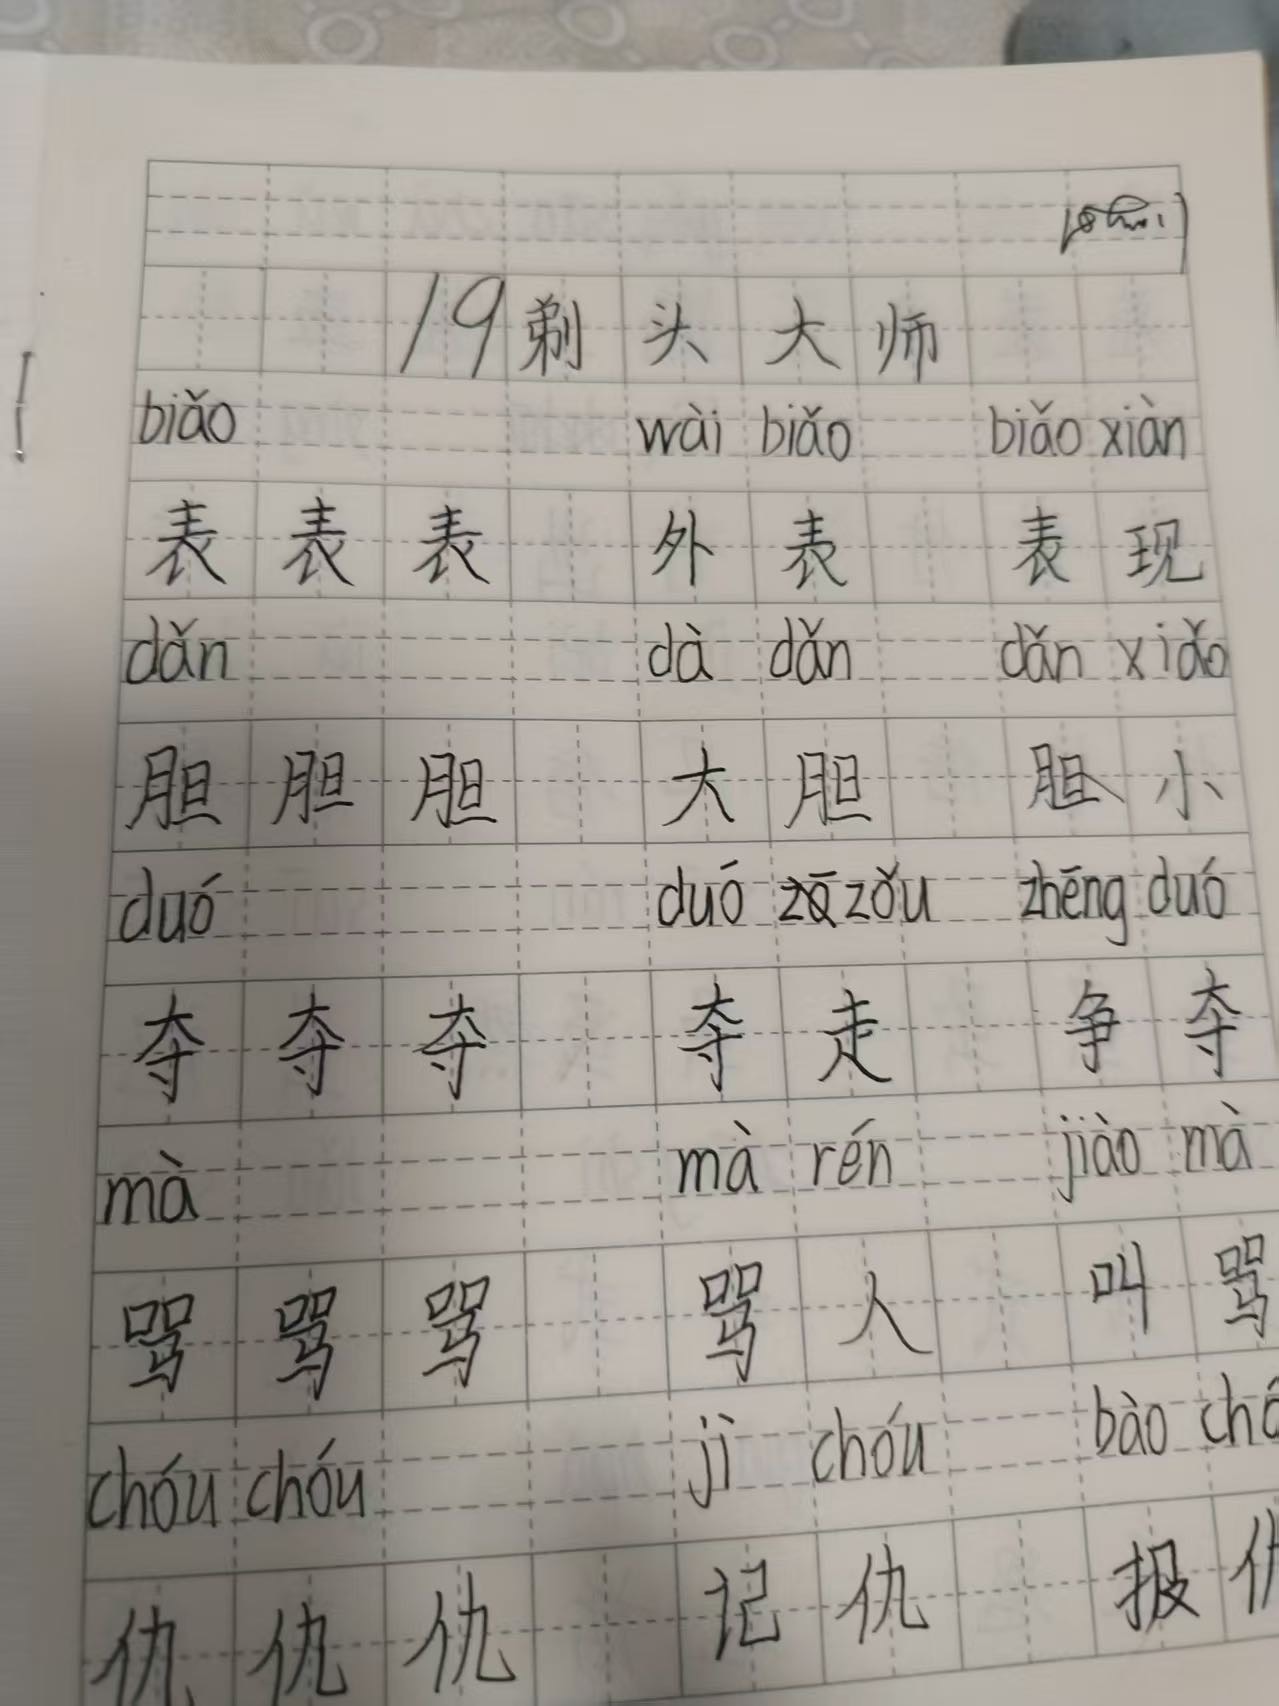 19剃头大师
biǎo wài biǎo biǎo xiàn
表 表 表 外 表 表 现
dǎn dà dǎn dǎn xiǎo
胆 胆 胆 大 胆 胆 小
duó duó zǒu zhēng duó
夺 夺 夺 夺 走 争 夺
mà mà rén jiào mà
骂 骂 骂 骂 人 叫 骂
chóu chóu jì chóu bào
仇 仇 仇 记 仇 报